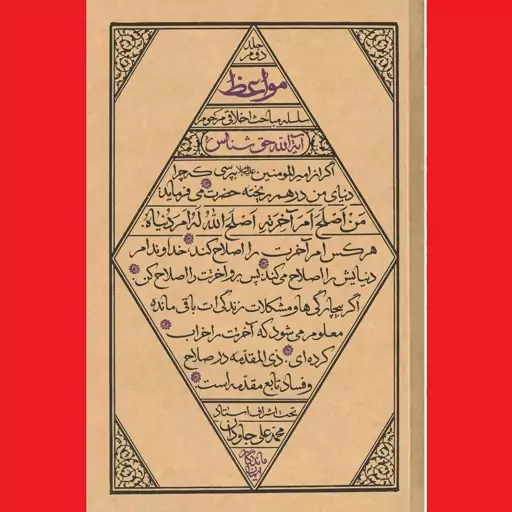 جلد
دوم
مواعظ
سلسله مباحث اخلاقی مرحوم
آیة‌الله حق شناس
اگر از امیرالمومنین علیه‌السلام بپرسی که چرا
دنیای من درهم ریخته حضرت می فرماید:
مَن اَصلَحَ اَمرَ آخِرَتِهِ اَصلَحَ اللهُ لَهُ اَمرَ دُنیاهُ.
هر کس امر آخرت را اصلاح کند خداوند امر
دنیایش را اصلاح می کند پس برو آخرت را اصلاح کن.
اگر بیچارگی ها و مشکلات زندگی ات باقی مانده
معلوم می شود که آخرتت را خراب
کرده ای. ذی المقدمه در صلاح
و فساد تابع مقدمه است.
تحت اشراف استاد
محمد علی جاودان